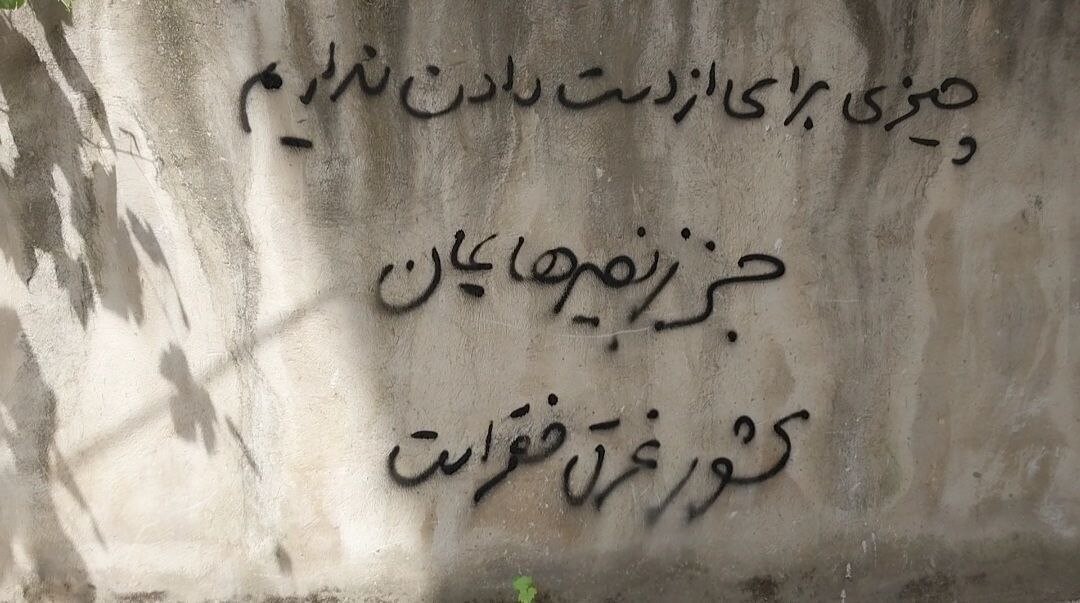 چیزی برای از دست دادن نداریم
جز زنجیرهایمان
کشور غرق فقر است